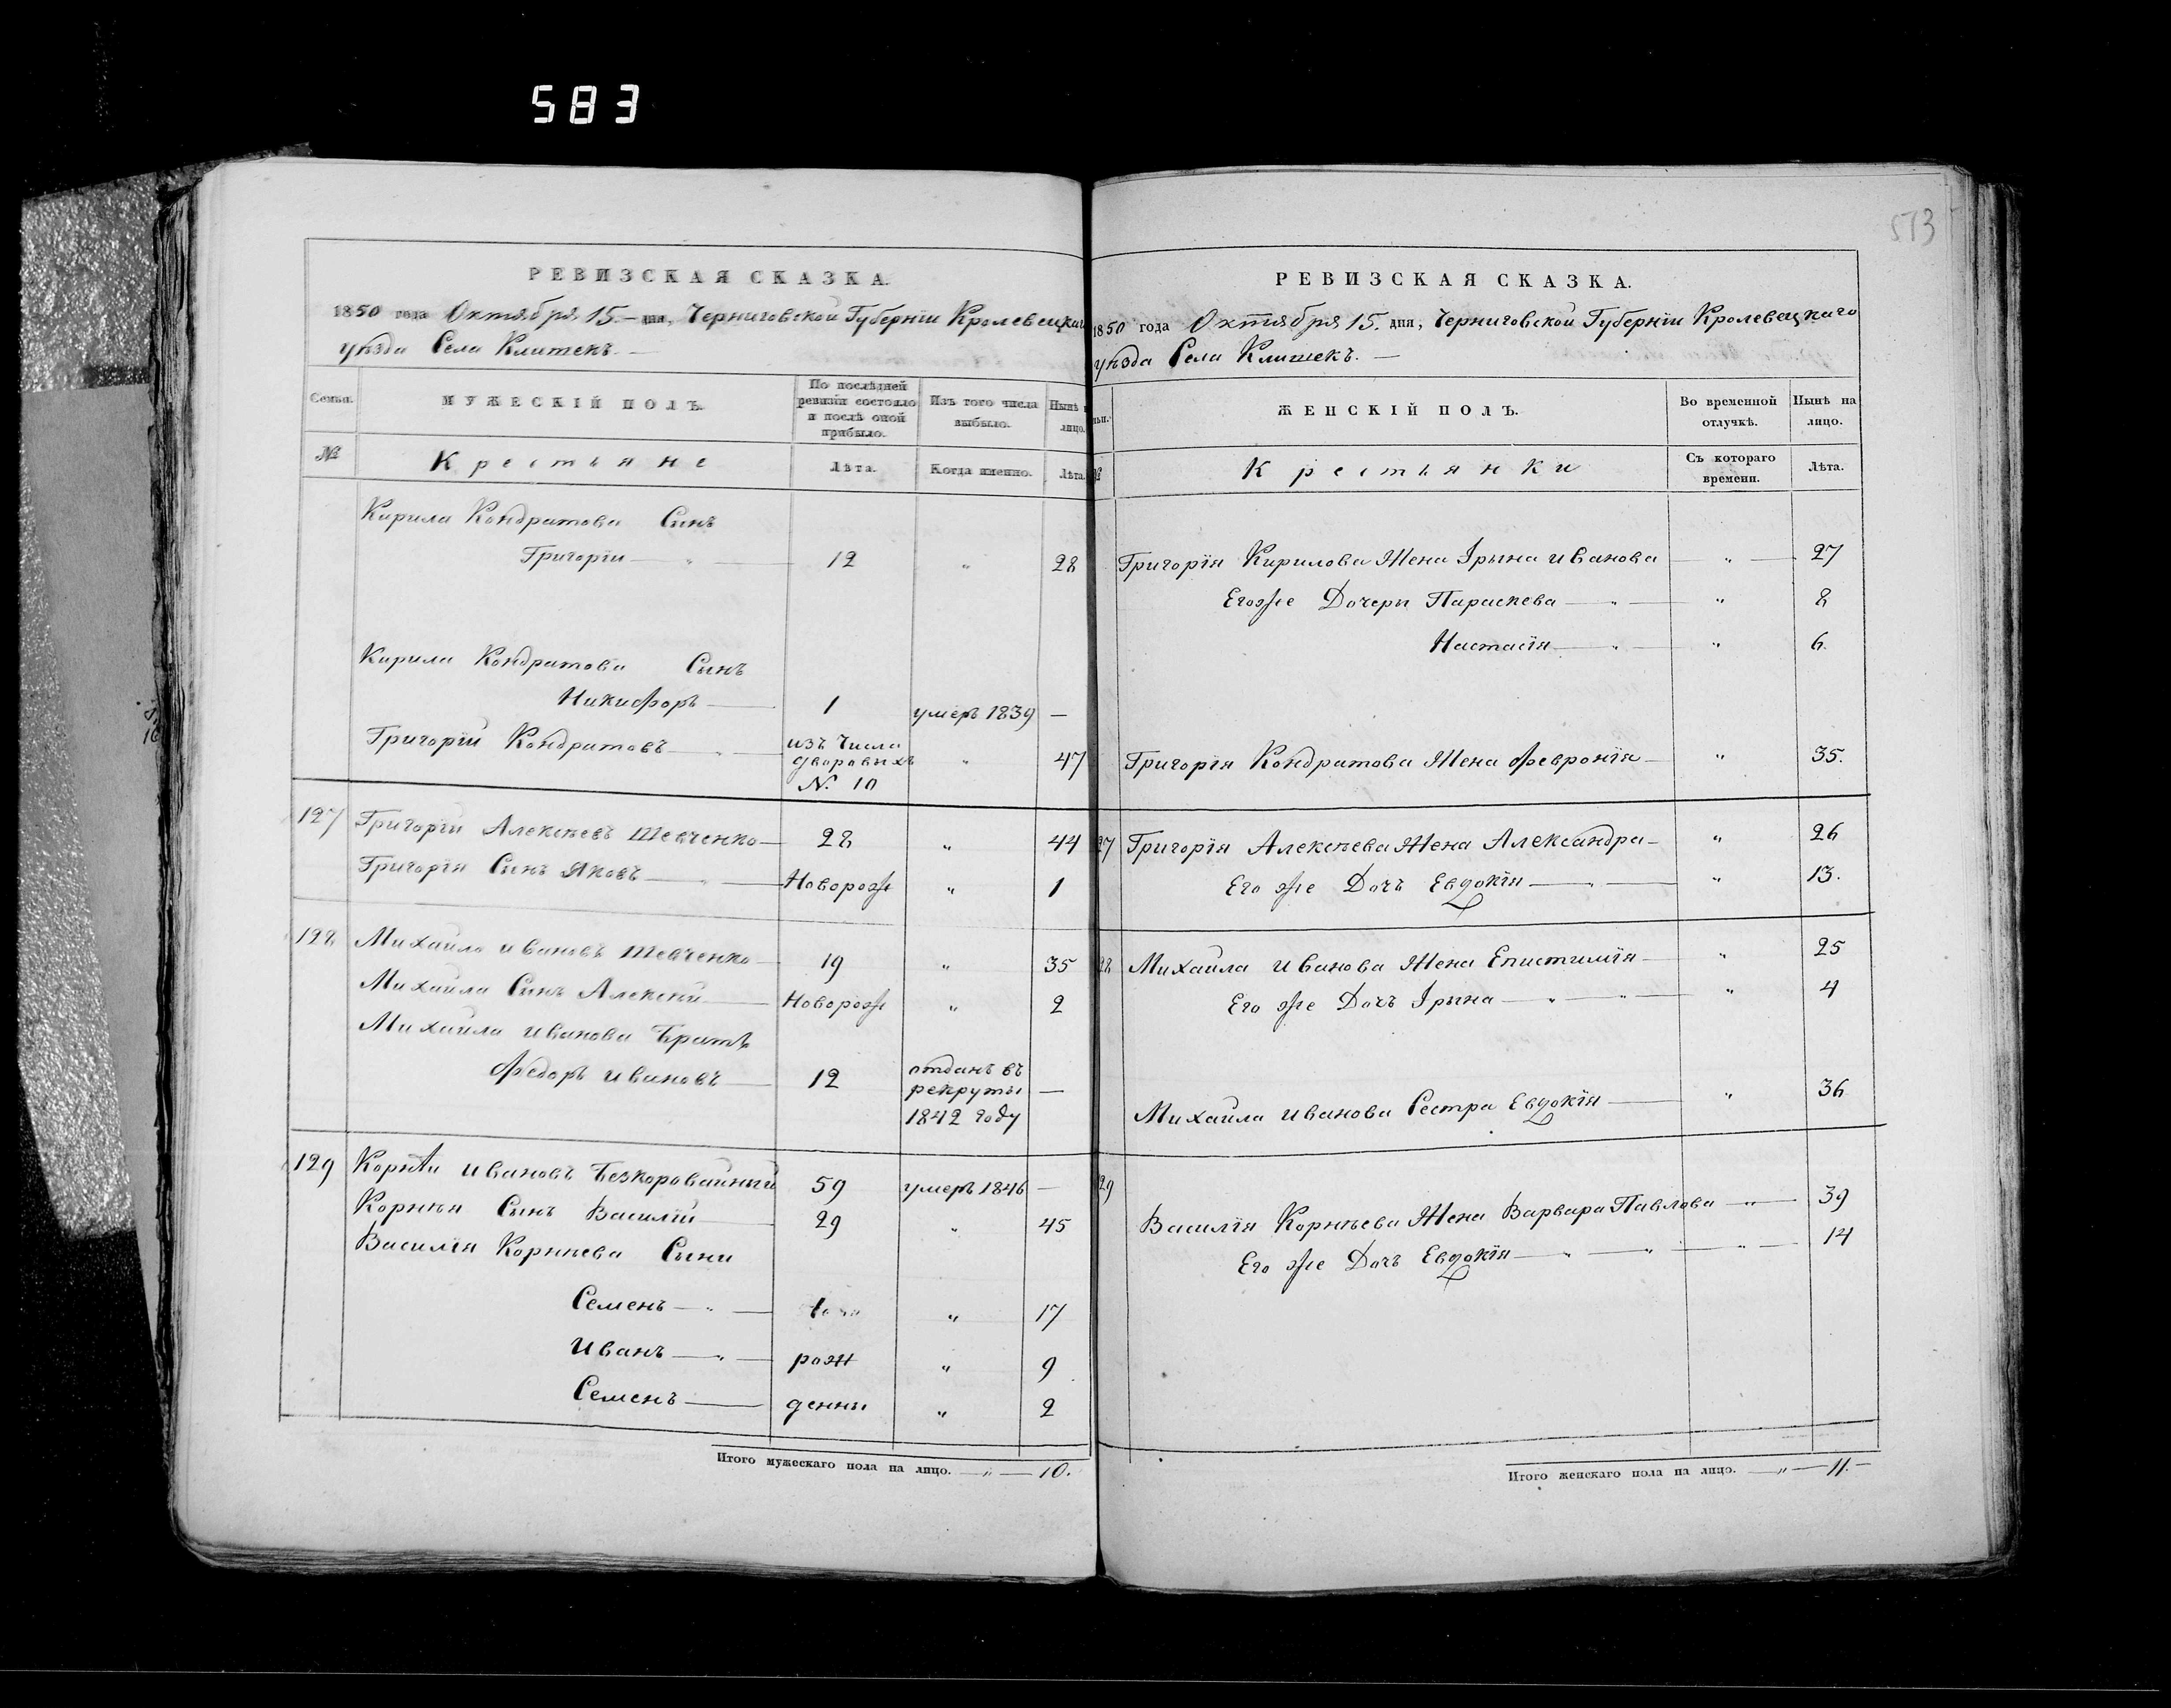 583
513
РЕВИЗСКАЯ СКАЗКА.
1850 года Октября 15.— дня, Черниговской Губерніи Кролевецкаго
уѣзда Села Клишекъ. —
Семьи.
МУЖЕСКІЙ ПОЛЪ.
По послѣдней ревизіи состояло и послѣ оной прибыло.
Изъ того числа выбыло.
Нынѣ на лицо.
№
Крестьяне
Лѣта.
Когда именно.
Лѣта.
Кирила Кондратова Сынъ
Григорій — " — 12 " 28
Кирила Кондратова Сынъ
Никифоръ — 1 умеръ 1839 —
Григорій Кондратовъ — " — изъ числа дворовыхъ N. 10 " 47
127 Григорій Алексѣевъ Шевченко — 28 " 44
Григорія Сынъ Яковъ — " — Новорож " 1
128 Михайло Ивановъ Шевченко — 19 " 35
Михайла Сынъ Алексѣй — Новорож " 2
Михайла Иванова Братъ
Федоръ Ивановъ — 12 отданъ въ рекруты 1842 году —
129 Корнѣй Ивановъ Безкоровайный 59 умеръ 1846 —
Корнѣя Сынъ Василій — 29 " 45
Василія Корнѣева Сыни
Семенъ — " — " 17
Иванъ — " — рож " 9
Семенъ — денны " 2
Итого мужескаго пола на лицо. — " — 10.
РЕВИЗСКАЯ СКАЗКА.
1850 года Октября 15. дня, Черниговской Губерніи Кролевецкаго
уѣзда Села Клишекъ. —
ЖЕНСКІЙ ПОЛЪ.
Во временной отлучкѣ.
Нынѣ на лицо.
Крестьянки
Съ котораго времени.
Лѣта.
Григорія Кирилова Жена Ірына Иванова — " — 27
Егоже Дочери Параскева — " — " 8
Настасія — " — " 6.
Григорія Кондратова Жена Февронія — " 35.
27 Григорія Алексѣева Жена Александра — " 26
Его же Дочъ Евдокія — " — " 13.
28 Михаила Иванова Жена Епистимія — " 25
Его же Дочъ Ірына — " — " — " 4
Михаила Иванова Сестра Евдокія — " 36
29
Василія Корнѣева Жена Варвара Павлова — " — 39
Его же Дочъ Евдокія — " — " — " — 14
Итого женскаго пола на лицо. — " — 11. —